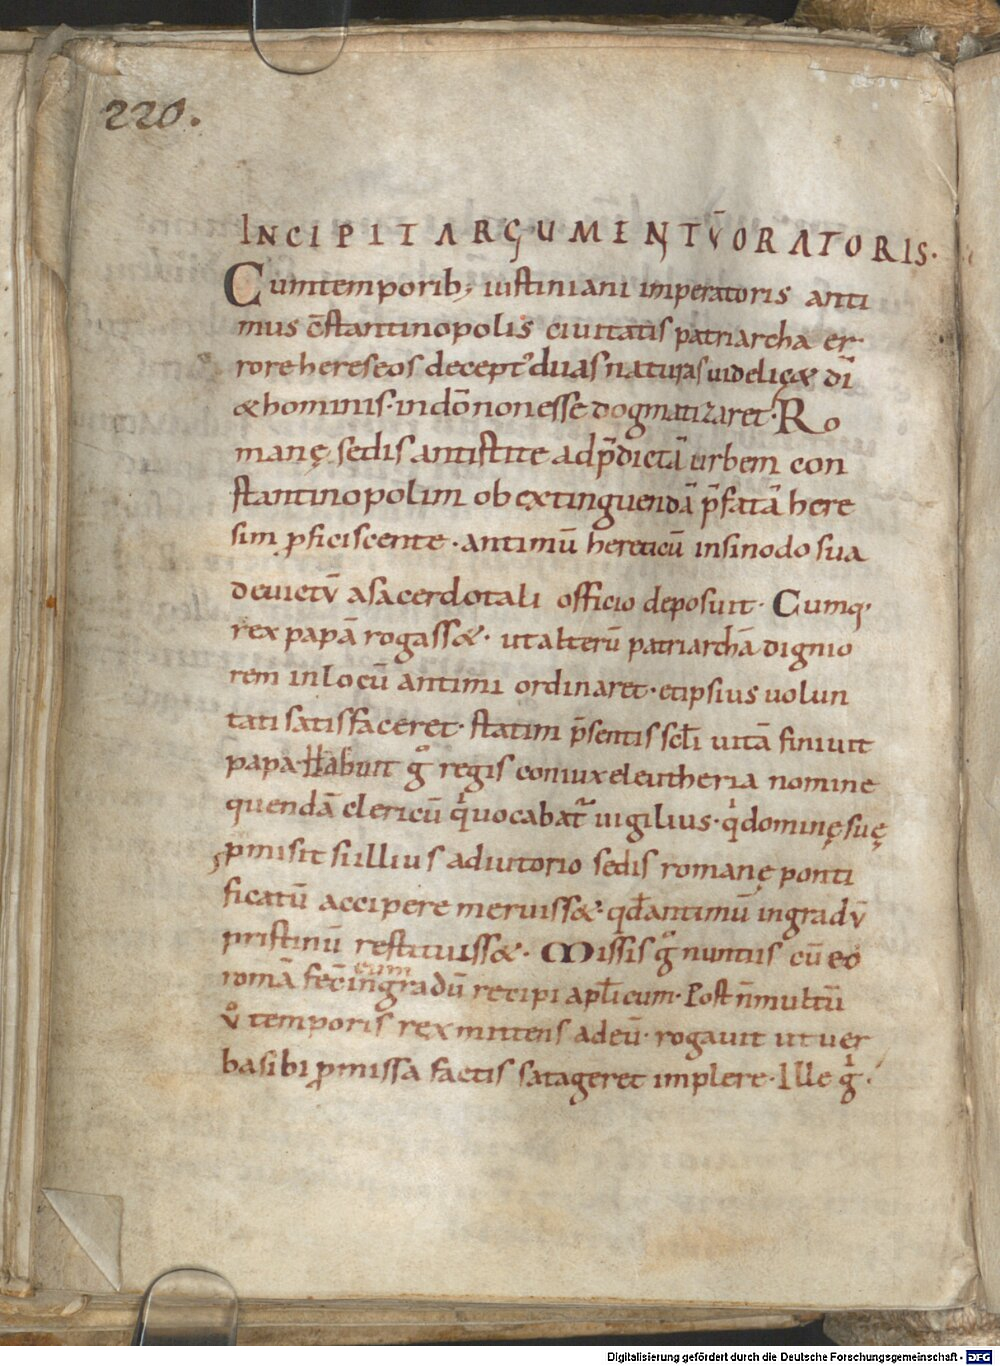 220.
INCIPIT ARGUMENTV̄ ORATORIS·
Cumtemporib; iustiniani imperatoris anti
mus c̄stantinopolis ciuitatis patriarcha er
rore hereseos decept᾽ duas naturas uidelicę& dī
& hominis· indō non esse dogmatizaret· Ro
manę sedis antistite adp̄dictā urbem con
stantinopolim ob extinguendā p̄fatā here
sim ꝓficiscente· antimū hereticū insinodo sua
deuictv̄ a sacerdotali officio deposuit· Cumq·
rex papā rogass&· ut alterū patriarchā dignio
rem inlocū antimi ordinaret· et ipsius uolun
tati satisfaceret· statim p̄sentis scl̄i uitā finiuit
papa· Habuit gͦ regis coniux eleutheria nomine
quendā clericū qͥ uocabat᷑ uigilius· qͥ dominę suę
ꝓmisit si illius adiutorio sedis romanę ponti
ficatū accipere meruiss&· qd̄ antimū in gradv̄
pristinū restituiss&· Missis gͦ nuntiis cū eo
romā fec̄ eum in gradū recipi apl̄icum· Post n̄ multū
vͦ temporis rex mittens ad eū· rogauit ut uer
ba sibi ꝓmissa factis satageret implere· Ille gͥ·
Digitalisierung gefördert durch die Deutsche Forschungsgemeinschaft - DFG